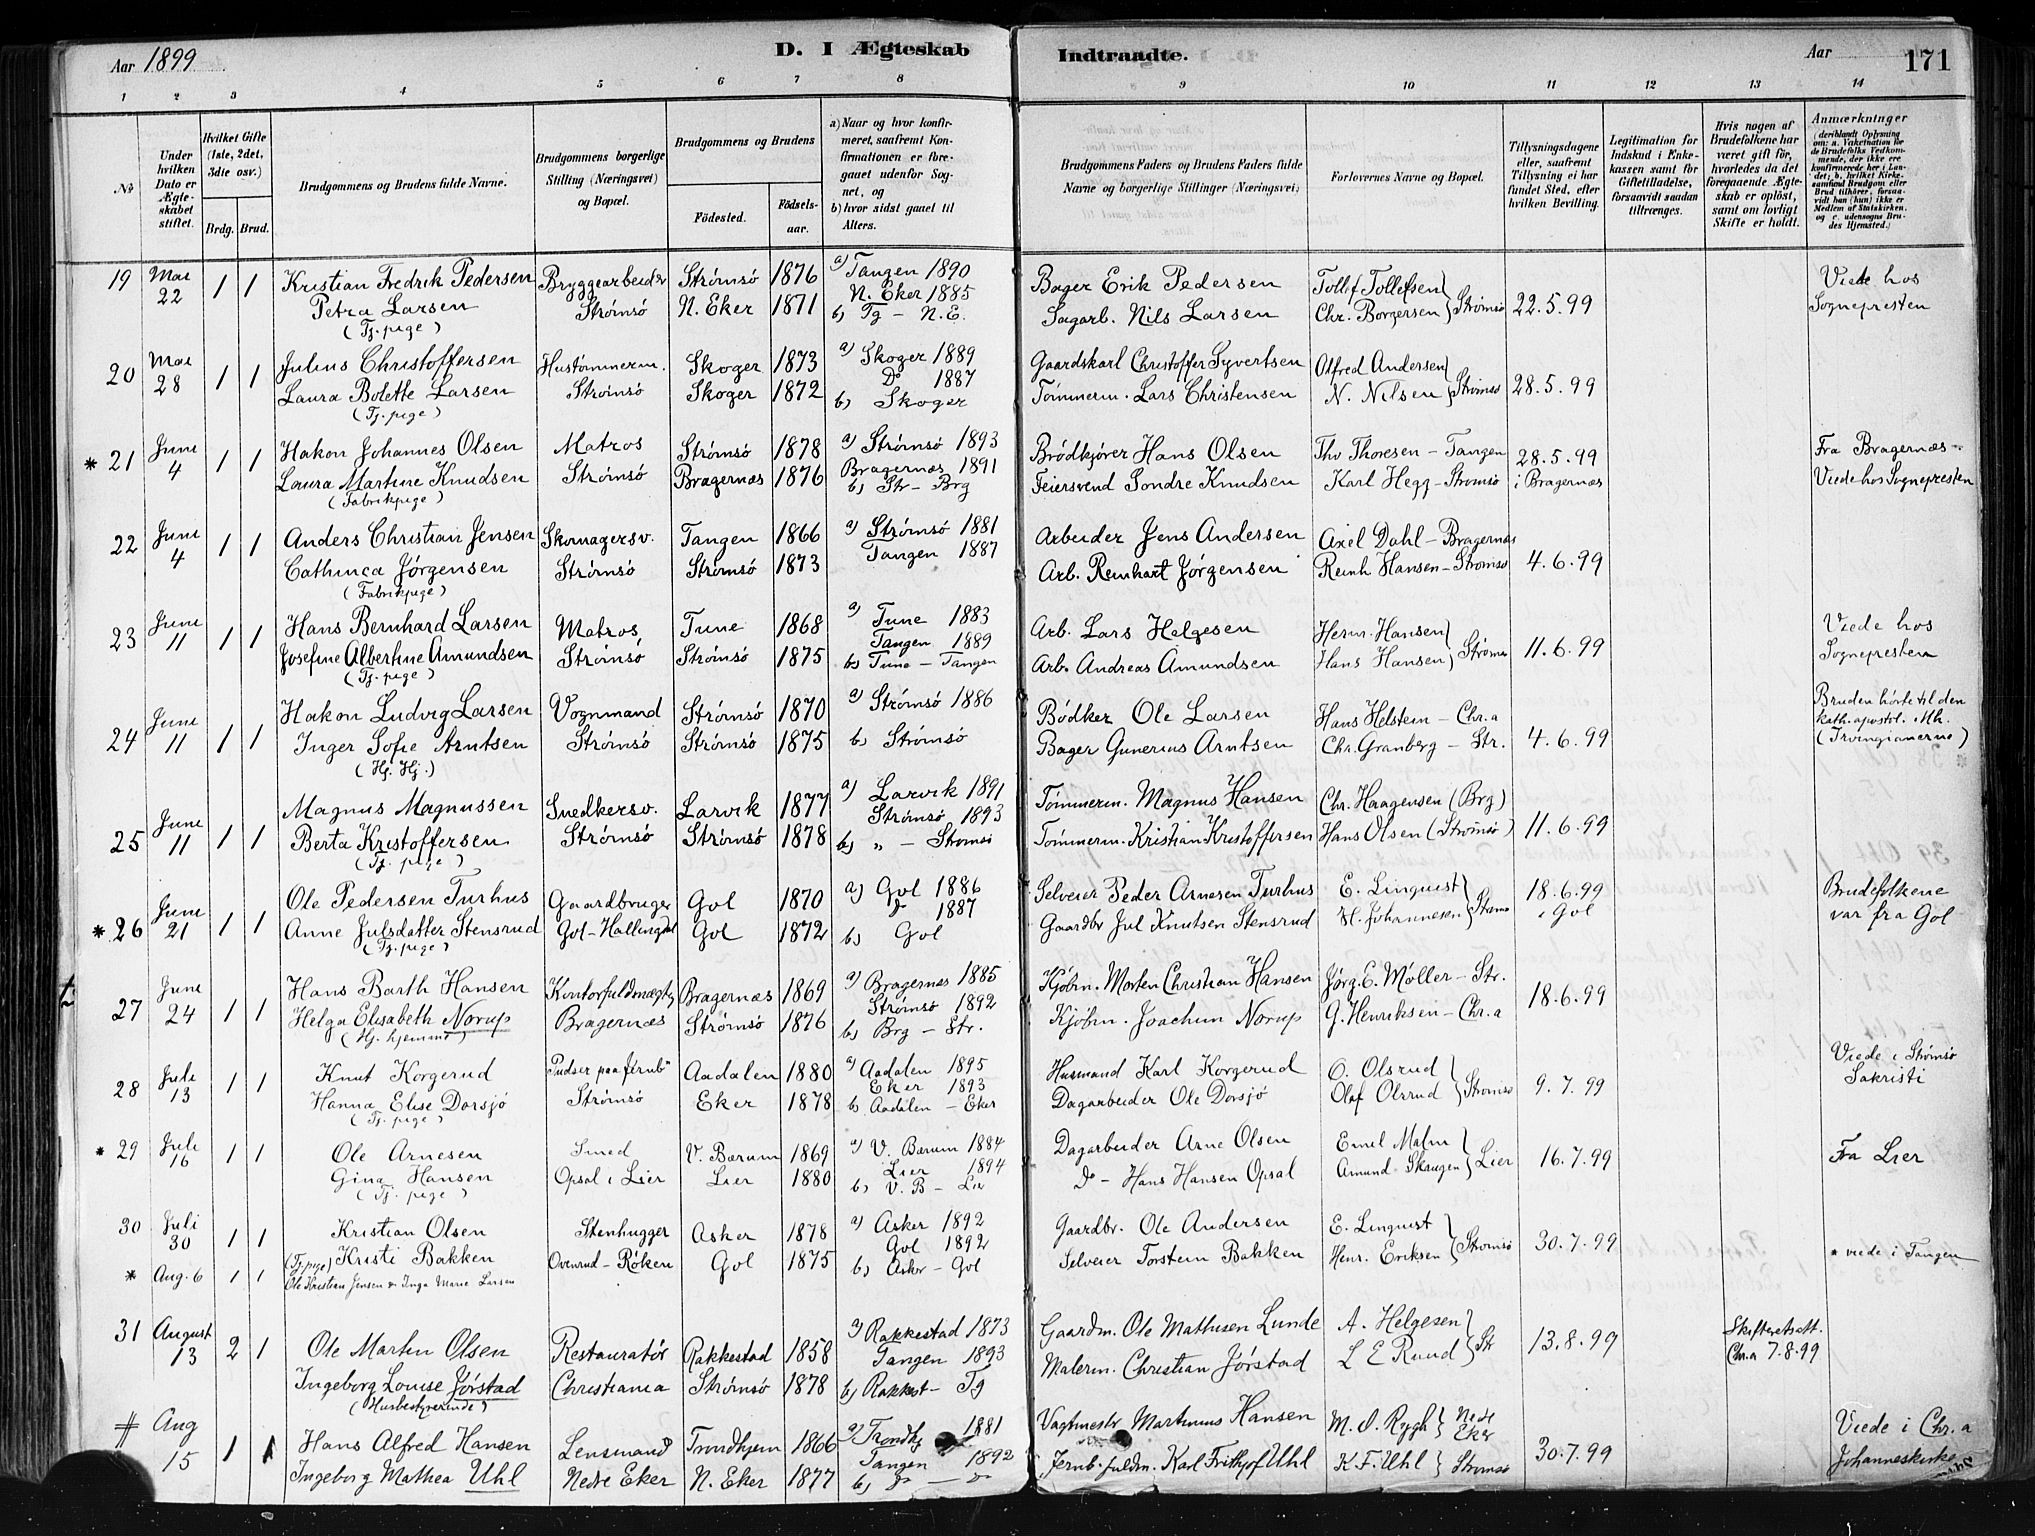 Aar 1899
D. I Ægteskab
Indtraadte.
Aar
171
1 2 3 4 5 6 7 8 9 10 11 12 13 14
No
Under hvilken Dato er Ægteskabet stiftet.
Hvilket Gifte (1ste, 2det, 3die osv.)
Brdg. Brud.
Brudgommens og Brudens fulde Navne.
Brudgommens borgerlige Stilling (Næringsvei) og Bopæl.
Brudgommens og Brudens
Födested.
Födselsaar.
a) Naar og hvor konfirmeret, saafremt Konfirmationen er foregaaet udenfor Sognet, og
b) hvor sidst gaaet til Alters.
Brudgommens Faders og Brudens Faders fulde Navne og borgerlige Stillinger (Næringsvei)
Forlovernes Navne og Bopæl.
Tillysningsdagene eller, saafremt Tillysning ei har fundet Sted, efter hvilken Bevilling.
Legitimation for Indskud i Enkekassen samt for Giftetilladelse, forsaavidt saadan tiltrænges.
Hvis nogen af Brudefolkene har været gift för, hvorledes da det foregaaende Ægteskab er oplöst, samt om lovligt Skifte er holdt.
Anmærkninger
(deriblandt Oplysning om: a. Vakcination for de Brudefolks Vedkommende, der ikke ere konfirmerede her i Landet; b. hvilket Kirkesamfund Brudgom eller Brud tilhörer, forsaavidt han (hun) ikke er Medlem af Statskirken, og c. udensogns Brudes Hjemsted.)
19 Mai 22 1 1 Kristian Fredrik Pedersen Bryggearbeider Strømsö 1876 a) Tangen 1890 Bager Erik Pedersen Tollef Tollefsen Viede hos
Petra Larsen Strømsö N. Eker 1871 N. Eker 1885 Sagarb. Nils Larsen Chr. Borgersen } Strømsö 22.5.99 Sognepresten
(Tj. pige) b) Tg - N.E.
20 Mai 28 1 1 Julius Christoffersen Hustømmerm. Skoger 1873 a) Skoger 1889 Gaardskarl Christoffer Syvertsen Alfred Andersen
Laura Bolette Larsen Strømsö Skoger 1872 Do 1887 Tømmerm. Lars Christensen N. Nilsen } Strømsö 28.5.99
(Tj. pige) b) Skoger
* 21 June 4 1 1 Hakon Johannes Olsen Matros Strømsö 1878 a) Strømsö 1893 Brödkjører Hans Olsen Thv Thoresen - Tangen 28.5.99 Fra Bragernæs -
Laura Martine Knudsen Strømsö Bragernæs 1876 Bragernæs 1891 Feiersvend Sondre Knudsen Karl Hegg - Strømsö i Bragernæs Viede hos Sognepresten
(Fabrikpige) b) Str - Brg
22 June 4 1 1 Anders Christian Jensen Skomagersv. Tangen 1866 a) Strømsö 1881 Arbeider Jens Andersen Axel Dahl - Bragernæs
Cathinca Jörgensen Strømsö Strømsö 1873 Tangen 1887 Arb. Reinhart Jörgensen Reinh Hansen - Strømsö 4.6.99
(Fabrikpige)
23 June 11 1 1 Hans Bernhard Larsen Matros Tune 1868 a) Tune 1883 Arb. Lars Helgesen Herm. Hansen Viede hos
Josefine Albertine Amundsen Strømsö Strømsö 1875 Tangen 1889 Arb. Andreas Amundsen Hans Hansen } Strømsö 11.6.99 Sognepresten
(Tj. pige) b) Tune - Tangen
24 June 11 1 1 Hakon Ludvig Larsen Vognmand Strømsö 1870 a) Strømsö 1886 Bödker Ole Larsen Hans Helstein - Chr.a Bruden hörte til den
Inger Sofie Arntsen Strømsö Strømsö 1875 b) Strømsö Bager Gunerius Arntsen Chr. Granberg - Str. 4.6.99 kath. apostol. Mh.
(Hj. Hj.) (Irvingianerne)
25 June 11 1 1 Magnus Magnussen Snedkersv. Larvik 1877 a) Larvik 1891 Tømmerm. Magnus Hansen Chr. Haagensen (Brg)
Berta Kristoffersen Strømsö Strømsö 1878 Strømsö 1893 Tømmerm. Kristian Kristoffersen Hans Olsen (Strømsö) 11.6.99
(Tj. pige) b) „ - Strømsö
* 26 June 21 1 1 Ole Pedersen Turhus Gaardbruger Gol 1870 a) Gol 1886 Selveier Peder Arnesen Turhus E. Linquist 18.6.99 Brudefolkene
Anne Julsdatter Stensrud Gol - Hallingdal Gol 1872 Do 1887 Gaardbr Jul Knutsen Stensrud H. Johannesen i Gol var fra Gol
(Tj. pige) b) Gol
27 June 24 1 1 Hans Barth Hansen Kontorfuldmægtig Bragernæs 1869 a) Bragernæs 1885 Kjöbm. Morten Christian Hansen Jörg. E. Møller - Str.
Helga Elisabeth Norup Bragernæs Strømsö 1876 Strømsö 1892 Kjöbm. Joachim Norup G. Henriksen - Chr.a 18.6.99
(Hj. hjemme) b) Brg - Str.
28 Juli 13 1 1 Knut Korgerud Pudser paa Jernb Aadalen 1880 a) Aadalen 1895 Husmand Karl Korgerud O. Olsrud Viede i Strømsö
Hanna Elise Dorsjö Strømsö Eker 1878 Eker 1893 Dagarbeider Ole Dorsjö Olaf Olsrud } Strømsö 9.7.99 Sakristi
(Tj. pige) b) Aadalen - Eker
* 29 Juli 16 1 1 Ole Arnesen Smed V. Bærum 1869 a) V. Bærum 1884 Dagarbeider Arne Olsen Emil Malm
Gina Hansen Opsal i Lier Lier 1880 Lier 1894 Do - Hans Hansen Opsal Amund Skaugen } Lier 16.7.99 Fra Lier
(Tj. pige) b) V. B - Lier
30 Juli 30 1 1 Kristian Olsen Stenhugger Asker 1878 a) Asker 1892 Gaardbr. Ole Andersen E. Linquist
(Tj. pige) Kristi Bakken Ovenrud - Röken Gol 1875 Gol 1892 Selveier Torstein Bakken Henr. Eriksen } Strømsö 30.7.99 * viede i Tangen
* Aug. 6 1 1 Ole Kristian Jensen & Inga Marie Larsen b) Asker - Gol
31 August 13 2 1 Ole Martin Olsen Restauratör Rakkestad 1858 a) Rakkestad 1873 Gaardm. Ole Mathisen Lunde A. Helgesen Skifteretsatt.
Ingeborg Louise Jörstad Christiania Strømsö 1878 Tangen 1893 Malerm. Christian Jörstad L E Ruud } Str 13.8.99 Chr.a 7.8.99
(Husbestyrerinde) b) Rakkest - Tg
# Aug 15 1 1 Hans Alfred Hansen Lensmand Trondhjem 1866 a) Trondhj 1881 Vagtmestr Martinius Hansen M. O. Rygh } Nedre Eker Viede i Chr.a
Ingeborg Mathea Uhl Nedre Eker N. Eker 1877 Tangen 1892 Jernb. fuldm. Karl Frithjof Uhl K F. Uhl } Strømsö 30.7.99 Johanneskirke
b) Do - Do